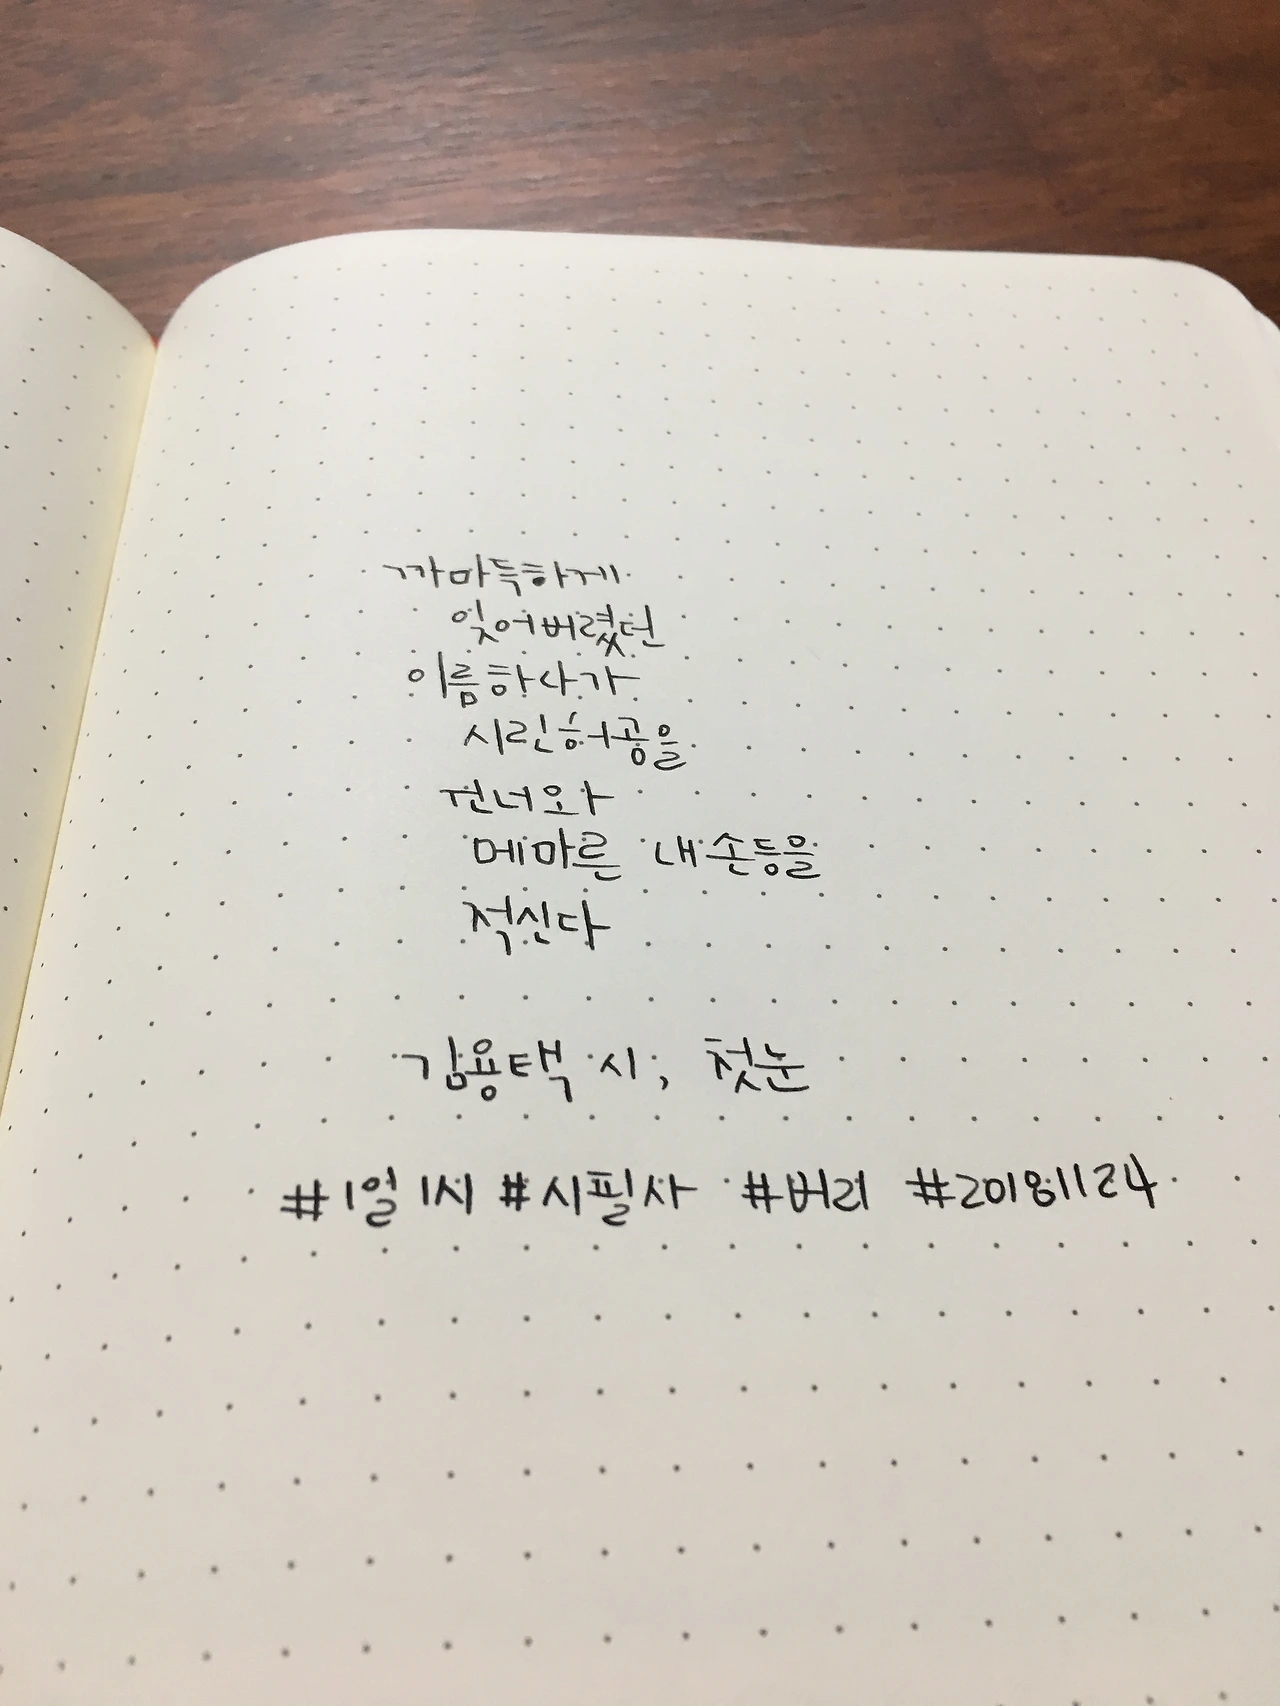 까마득하게
잊어버렸던
이름하나가
시린허공을
건너와
메마른 내손등을
적신다
김용택 시; 첫눈
#1일1시 #시필사 #버리 #20181124